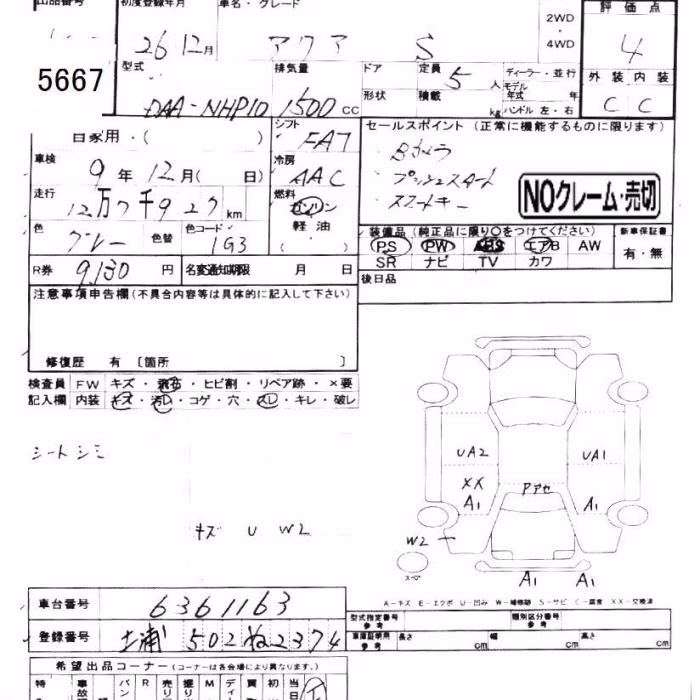 出品番号 初度登録年月 車名・グレード 評価点
5667 26年12月 アクア S 2WD・4WD 4
型式 排気量 ドア 定員 5人 ディーラー・並行 外装 内装
DAA-NHP10 1500cc 形状 積載 kg モデル年式 年 ハンドル 左・右 C C
自家用・( ) シフト FAT セールスポイント (正常に機能するものに限ります)
車検 9年12月( 日) 冷房 AAC Bカメラ
プッシュスタート
スマートキー
NOクレーム・売切
走行 12万7千927km 燃料 ガソリン 軽油 ( )
色 グレー 色替 色コード 1G3
装備品 (純正品に限り○をつけてください) 新車保証書
PS PW ABS エアB AW 有・無
SR ナビ TV カワ
R券 9,130円 名変通知期限 月 日 後日品
注意事項申告欄(不具合内容等は具体的に記入して下さい)
修復歴 有 [箇所 ]
検査員 FW キズ・飛石・ヒビ割・リペア跡・×要
記入欄 内装 キズ・汚レ・コゲ・穴・スレ・キレ・破レ
シートシミ
キズ U W2
UA2 UA1
XX A1 Pアセ A1
W2
スペア A1 A1
A-キズ E-エクボ U-凹み W-補修跡 S-サビ C-腐食 XX-交換済
車台番号 6361163
型式指定番号 参考 類別区分番号 参考
登録番号 土浦 502 ね 2374
車庫証明用 参考 長さ cm 幅 cm 高さ cm
希望出品コーナー (コーナーは各会場により異なります。)